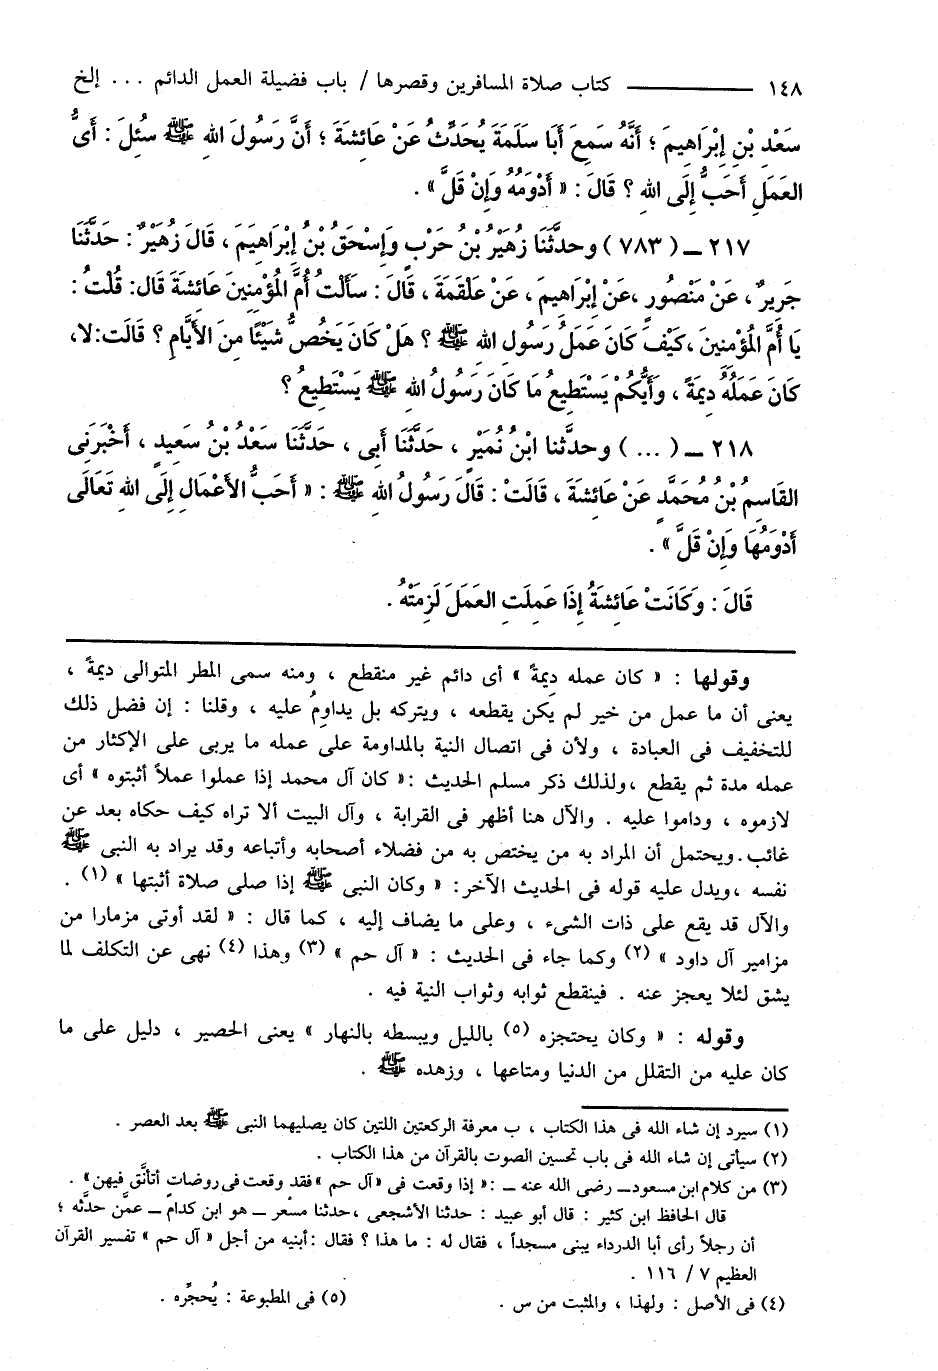 ١٤٨ ــــــــــــ كتاب صلاة المسافرين وقصرها / باب فضيلة العمل الدائم ... إلخ
سَعْدِ بْنِ إِبْرَاهِيمَ ؛ أَنَّهُ سَمِعَ أَبَا سَلَمَةَ يُحَدِّثُ عَنْ عَائِشَةَ ؛ أَنَّ رَسُولَ اللهِ ﷺ سُئِلَ : أَىُّ
العَمَلِ أَحَبُّ إِلَى اللهِ ؟ قَالَ : « أَدْوَمُهُ وَإِنْ قَلَّ » .
٢١٧ ــ ( ٧٨٣ ) وحدَّثَنَا زُهَيْرُ بْنُ حَرْبٍ وَإِسْحَقُ بْنُ إِبْرَاهِيَمَ ، قَالَ زُهَيْرٌ : حَدَّثَنَا
جَرِيرٌ ، عَنْ مَنْصُورٍ ،عَنْ إِبْرَاهِيمَ ، عَنْ عَلْقَمَةَ ، قَالَ : سَأَلْتُ أُمَّ الْمُؤْمِنِينَ عَائِشَةَ قَال: قُلْتُ :
يَا أُمَّ الْمُؤْمِنِينَ ،كَيْفَ كَانَ عَمَلُ رَسُولِ اللهِ ﷺ ؟ هَلْ كَانَ يَخُصُّ شَيْئًا مِنَ الأَيَّامِ ؟ قَالَت:لا،
كَانَ عَمَلُهُ دِيمَةً ، وَأَيُّكُمْ يَسْتَطِيعُ مَا كَانَ رَسُولُ اللهِ ﷺ يَسْتَطِيعُ ؟
٢١٨ ــ ( ... ) وحدَّثنا ابْنُ نُمَيْرٍ ، حَدَّثَنَا أَبِى ، حَدَّثَنَا سَعْدُ بْنُ سَعِيدٍ ، أَخْبَرَنِى
القَاسِمُ بْنُ مُحَمَّدٍ عَنْ عَائِشَةَ ، قَالَتْ : قَالَ رَسُولُ اللهِ ﷺ : « أَحَبُّ الأَعْمَالِ إِلَى اللهِ تَعَالَى
أَدْوَمُهَا وَإِنْ قَلَّ » .
قَالَ : وَكَانَتْ عَائِشَةُ إِذَا عَمِلَتِ العَمَلَ لَزِمَتْهُ .
وقولها : « كان عمله دِيمةً » أى دائم غير منقطع ، ومنه سمى المطر المتوالى ديمةً ،
يعنى أن ما عمل من خير لم يكن يقطعه ، ويتركه بل يداومُ عليه ، وقلنا : إن فضل ذلك
للتخفيف فى العبادة ، ولأن فى اتصال النية بالمداومة على عمله ما يربى على الإكثار من
عمله مدة ثم يقطع ،ولذلك ذكر مسلم الحديث :« كان آل محمد إذا عملوا عملاً أثبتوه » أى
لازموه ، وداموا عليه . والآل هنا أظهر فى القرابة ، وآل البيت ألا تراه كيف حكاه بعد عن
غائب.ويحتمل أن المراد به من يختص به من فضلاء أصحابه وأتباعه وقد يراد به النبى ﷺ
نفسه ،ويدل عليه قوله فى الحديث الآخر: « وكان النبى ﷺ إذا صلى صلاة أثبتها » (١) .
والآل قد يقع على ذات الشىء ، وعلى ما يضاف إليه ، كما قال : « لقد أوتى مزمارا من
مزامير آل داود » (٢) وكما جاء فى الحديث : « آل حم » (٣) وهذا (٤) نهى عن التكلف لما
يشق لئلا يعجز عنه . فينقطع ثوابه وثواب النية فيه .
وقوله : « وكان يحتجزه (٥) بالليل ويبسطه بالنهار » يعنى الحصير ، دليل على ما
كان عليه من التقلل من الدنيا ومتاعها ، وزهده ﷺ .
(١) سيرد إن شاء الله فى هذا الكتاب ، ب معرفة الركعتين اللتين كان يصليهما النبى ﷺ بعد العصر .
(٢) سيأتى إن شاء الله فى باب تحسين الصوت بالقرآن من هذا الكتاب .
(٣) من كلام ابن مسعود ــ رضى الله عنه ــ :« إذا وقعت فى «آل حم » فقد وقعت فى روضات أتأنَّق فيهن» .
قال الحافظ ابن كثير : قال أبو عبيد : حدثنا الأشجعى ،حدثنا مسْعر ــ هو ابن كدام ــ عمَّن حدَّثه ؛
أن رجلاً رأى أبا الدرداء يبنى مسجداً ، فقال له : ما هذا ؟ فقال :أبنيه من أجل « آل حم » تفسير القرآن
العظيم ٧ / ١١٦ .
(٤) فى الأصل : ولهذا ، والمثبت من س . (٥) فى المطبوعة : يُحجِّره .